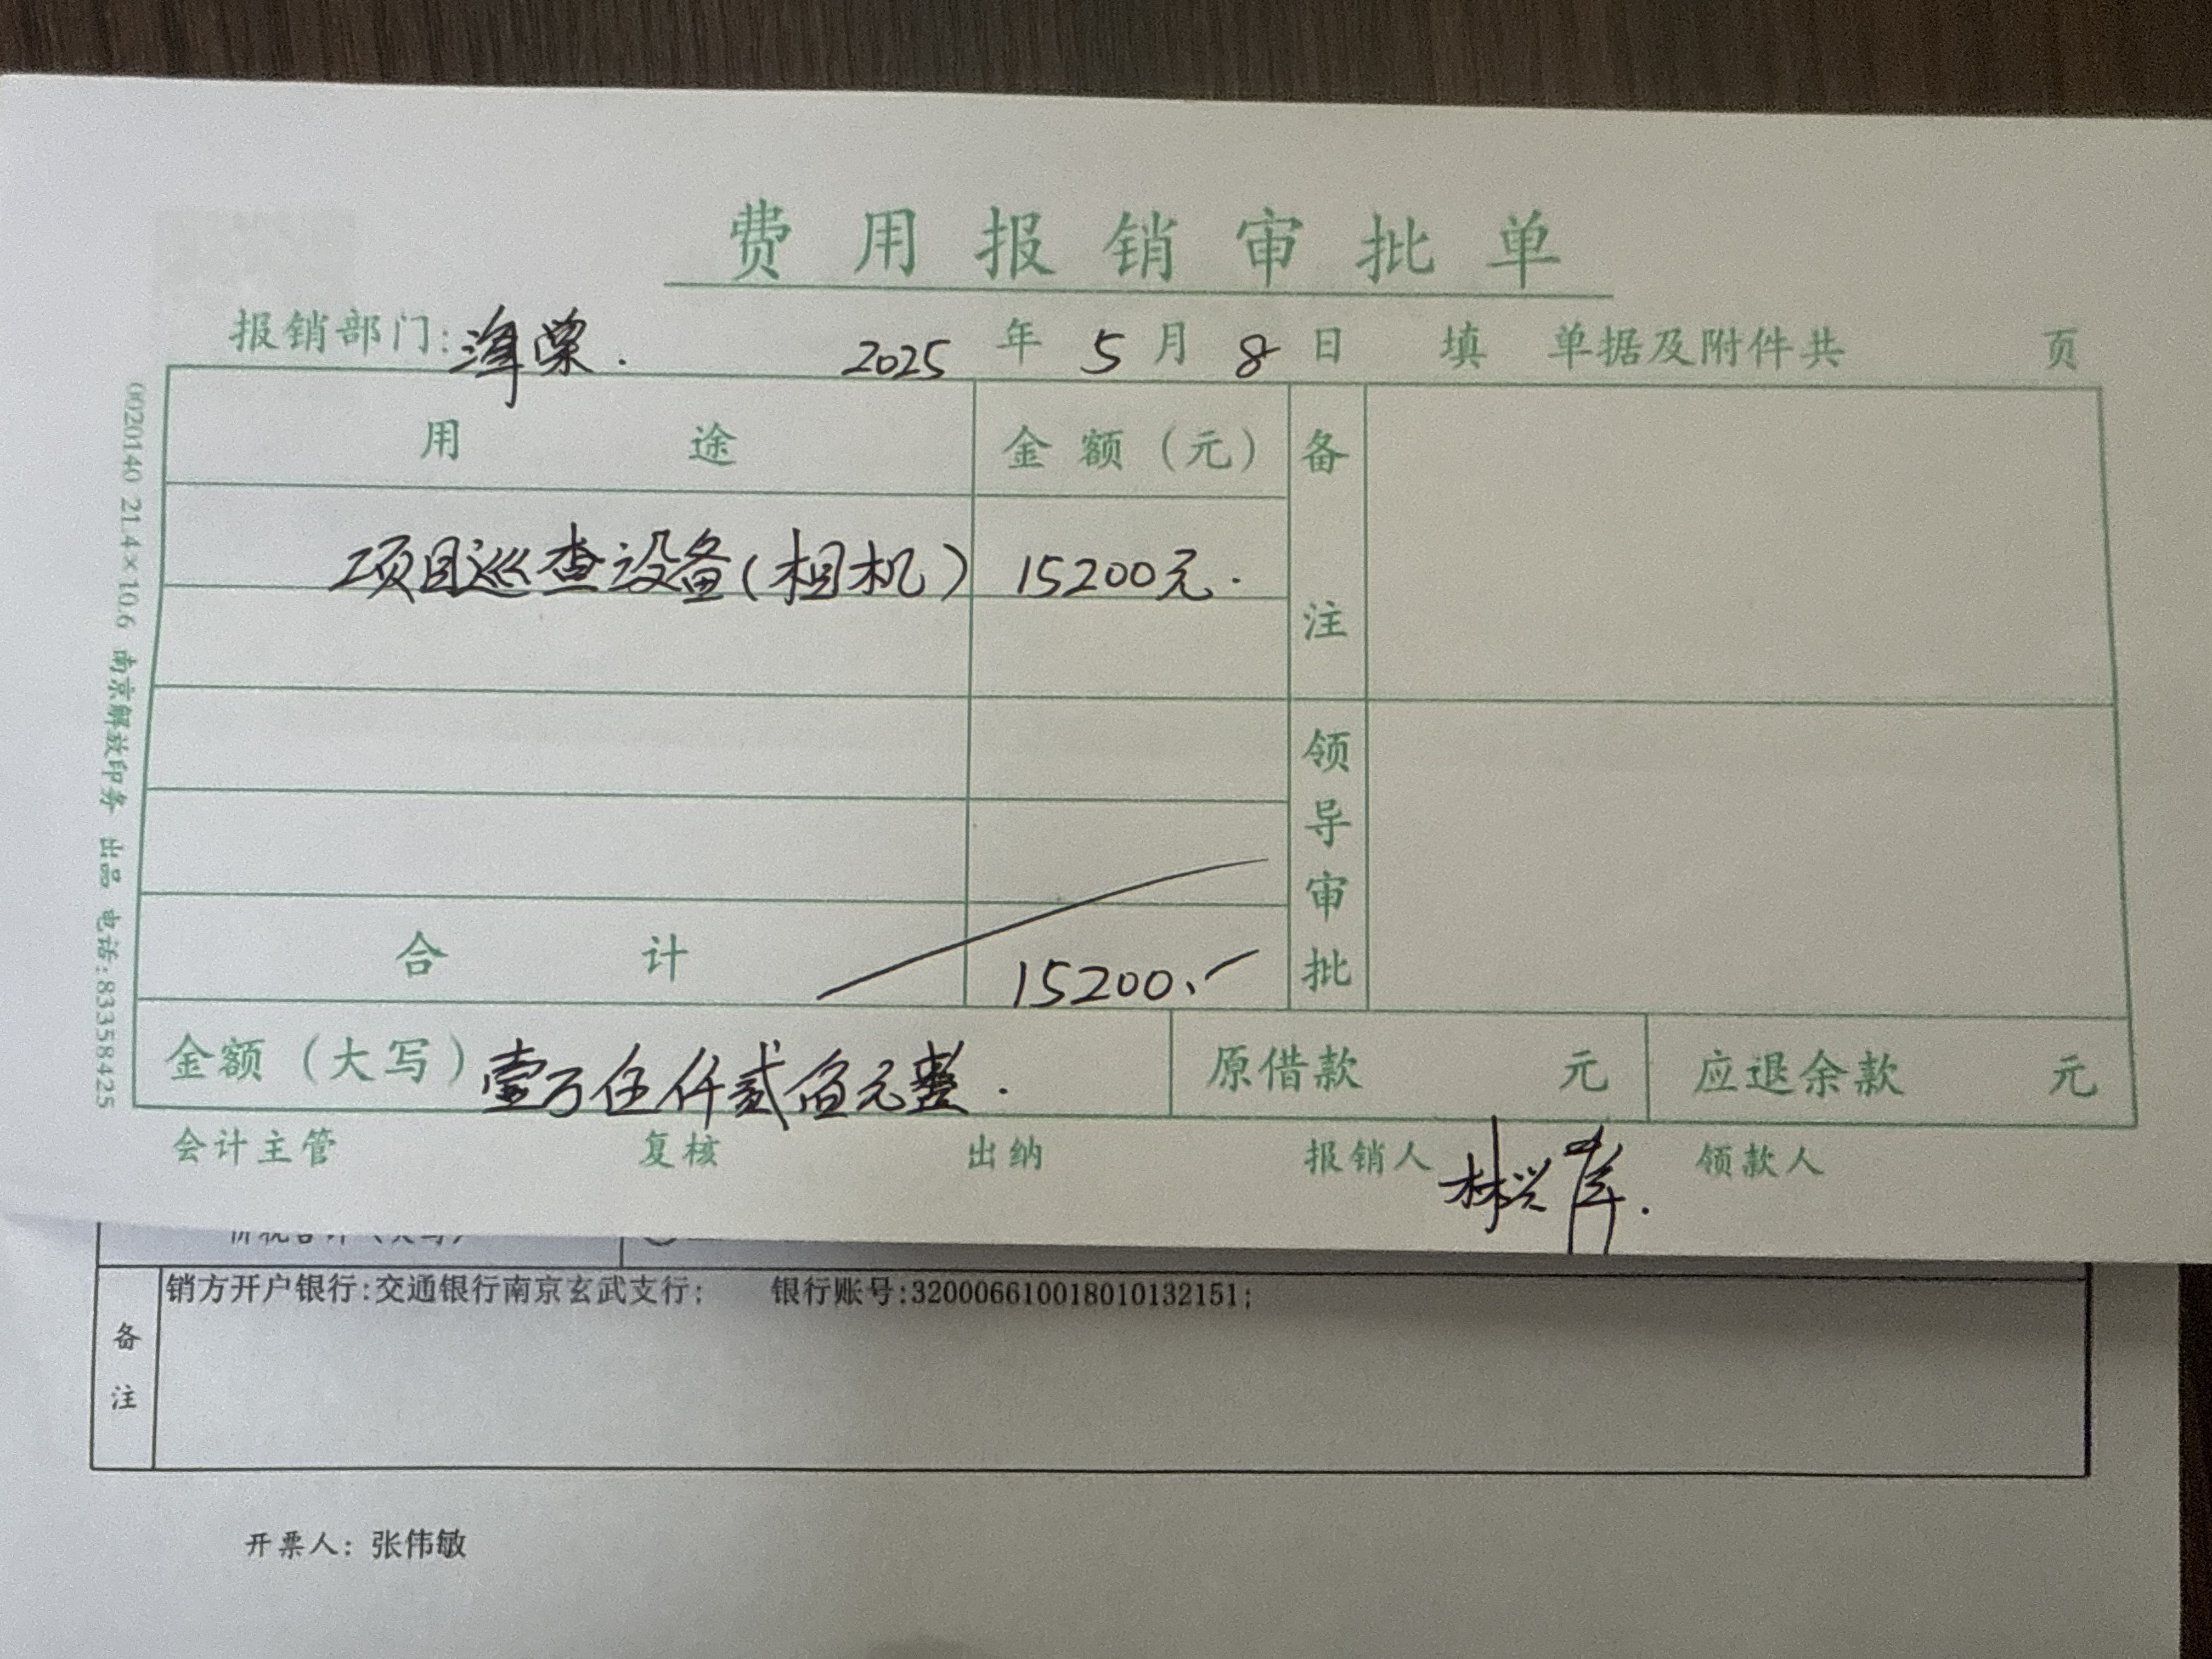 费用报销审批单
报销部门: 2025 年 5 月 8 日 填 单据及附件共 页
用途 金额（元） 备注
项目巡查设备(相机) 15200元.
领导审批
合计 15200.
金额（大写） 壹万伍仟贰佰元整. 原借款 元 应退余款 元
会计主管 复核 出纳 报销人 领款人
0020140 21.4×10.6 南京解放印务 出品 电话:83358425
价税合计（大写）
备注
销方开户银行:交通银行南京玄武支行; 银行账号:320006610018010132151;
开票人: 张伟敏